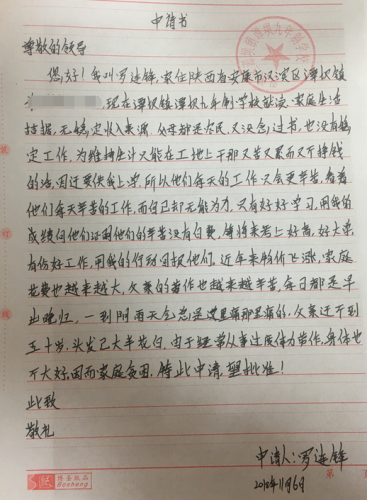 申请书
尊敬的领导
您好！我叫罗连锋，家住陕西省安康市汉滨区谭坝镇
现在谭坝镇谭坝九年制学校就读，家庭生活
拮据，无稳定收入来源，父母都是农民，又没念过书，也没有稳
定工作，为维持生计又能在工地上干那又苦又累而又不挣钱
的活，因还要供我上学，所以他们每天的工作又会更辛苦，看着
他们每天辛苦的工作，而自己却无能为力，只有好好学习，用我的
成绩向他们证明他们的辛苦没有白费，等将来考上好高，好大学，
有份好工作，用我的行动回报他们，近年来物价飞涨，家庭
花费也越来越大，父亲的劳作也越来越辛苦，每日都是早
出晚归，一到阴雨天会总是这里痛那里痛的，父亲还不到
五十岁，头发已大半花白，由于经常从事过度体力劳作，身体也
不大好，因而家庭贫困，特此申请，望批准！
此致
敬礼
申请人：罗连锋
2018年11月6日
博圣纸品
Bosheng